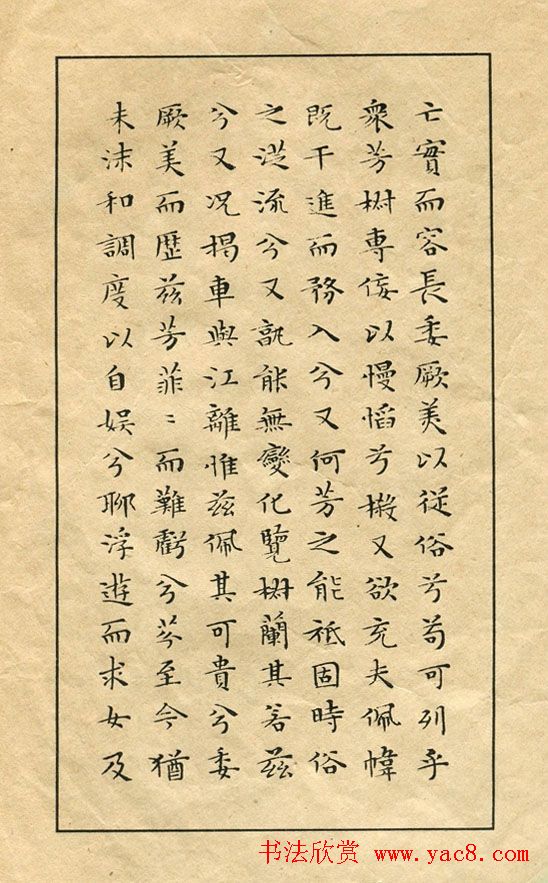 亡實而容長委厥美以従俗兮苟可列乎
衆芳椒専佞以慢慆兮樧又欲充夫佩幃
既干進而務入兮又何芳之能祗固時俗
之從流兮又孰能無變化覽椒蘭其若茲
兮又况揭車與江離惟茲佩其可貴兮委
厥美而歷茲芳菲〻而難虧兮芬至今猶
未沬和調度以自娛兮聊浮遊而求女及
书法欣赏 www.yac8.com